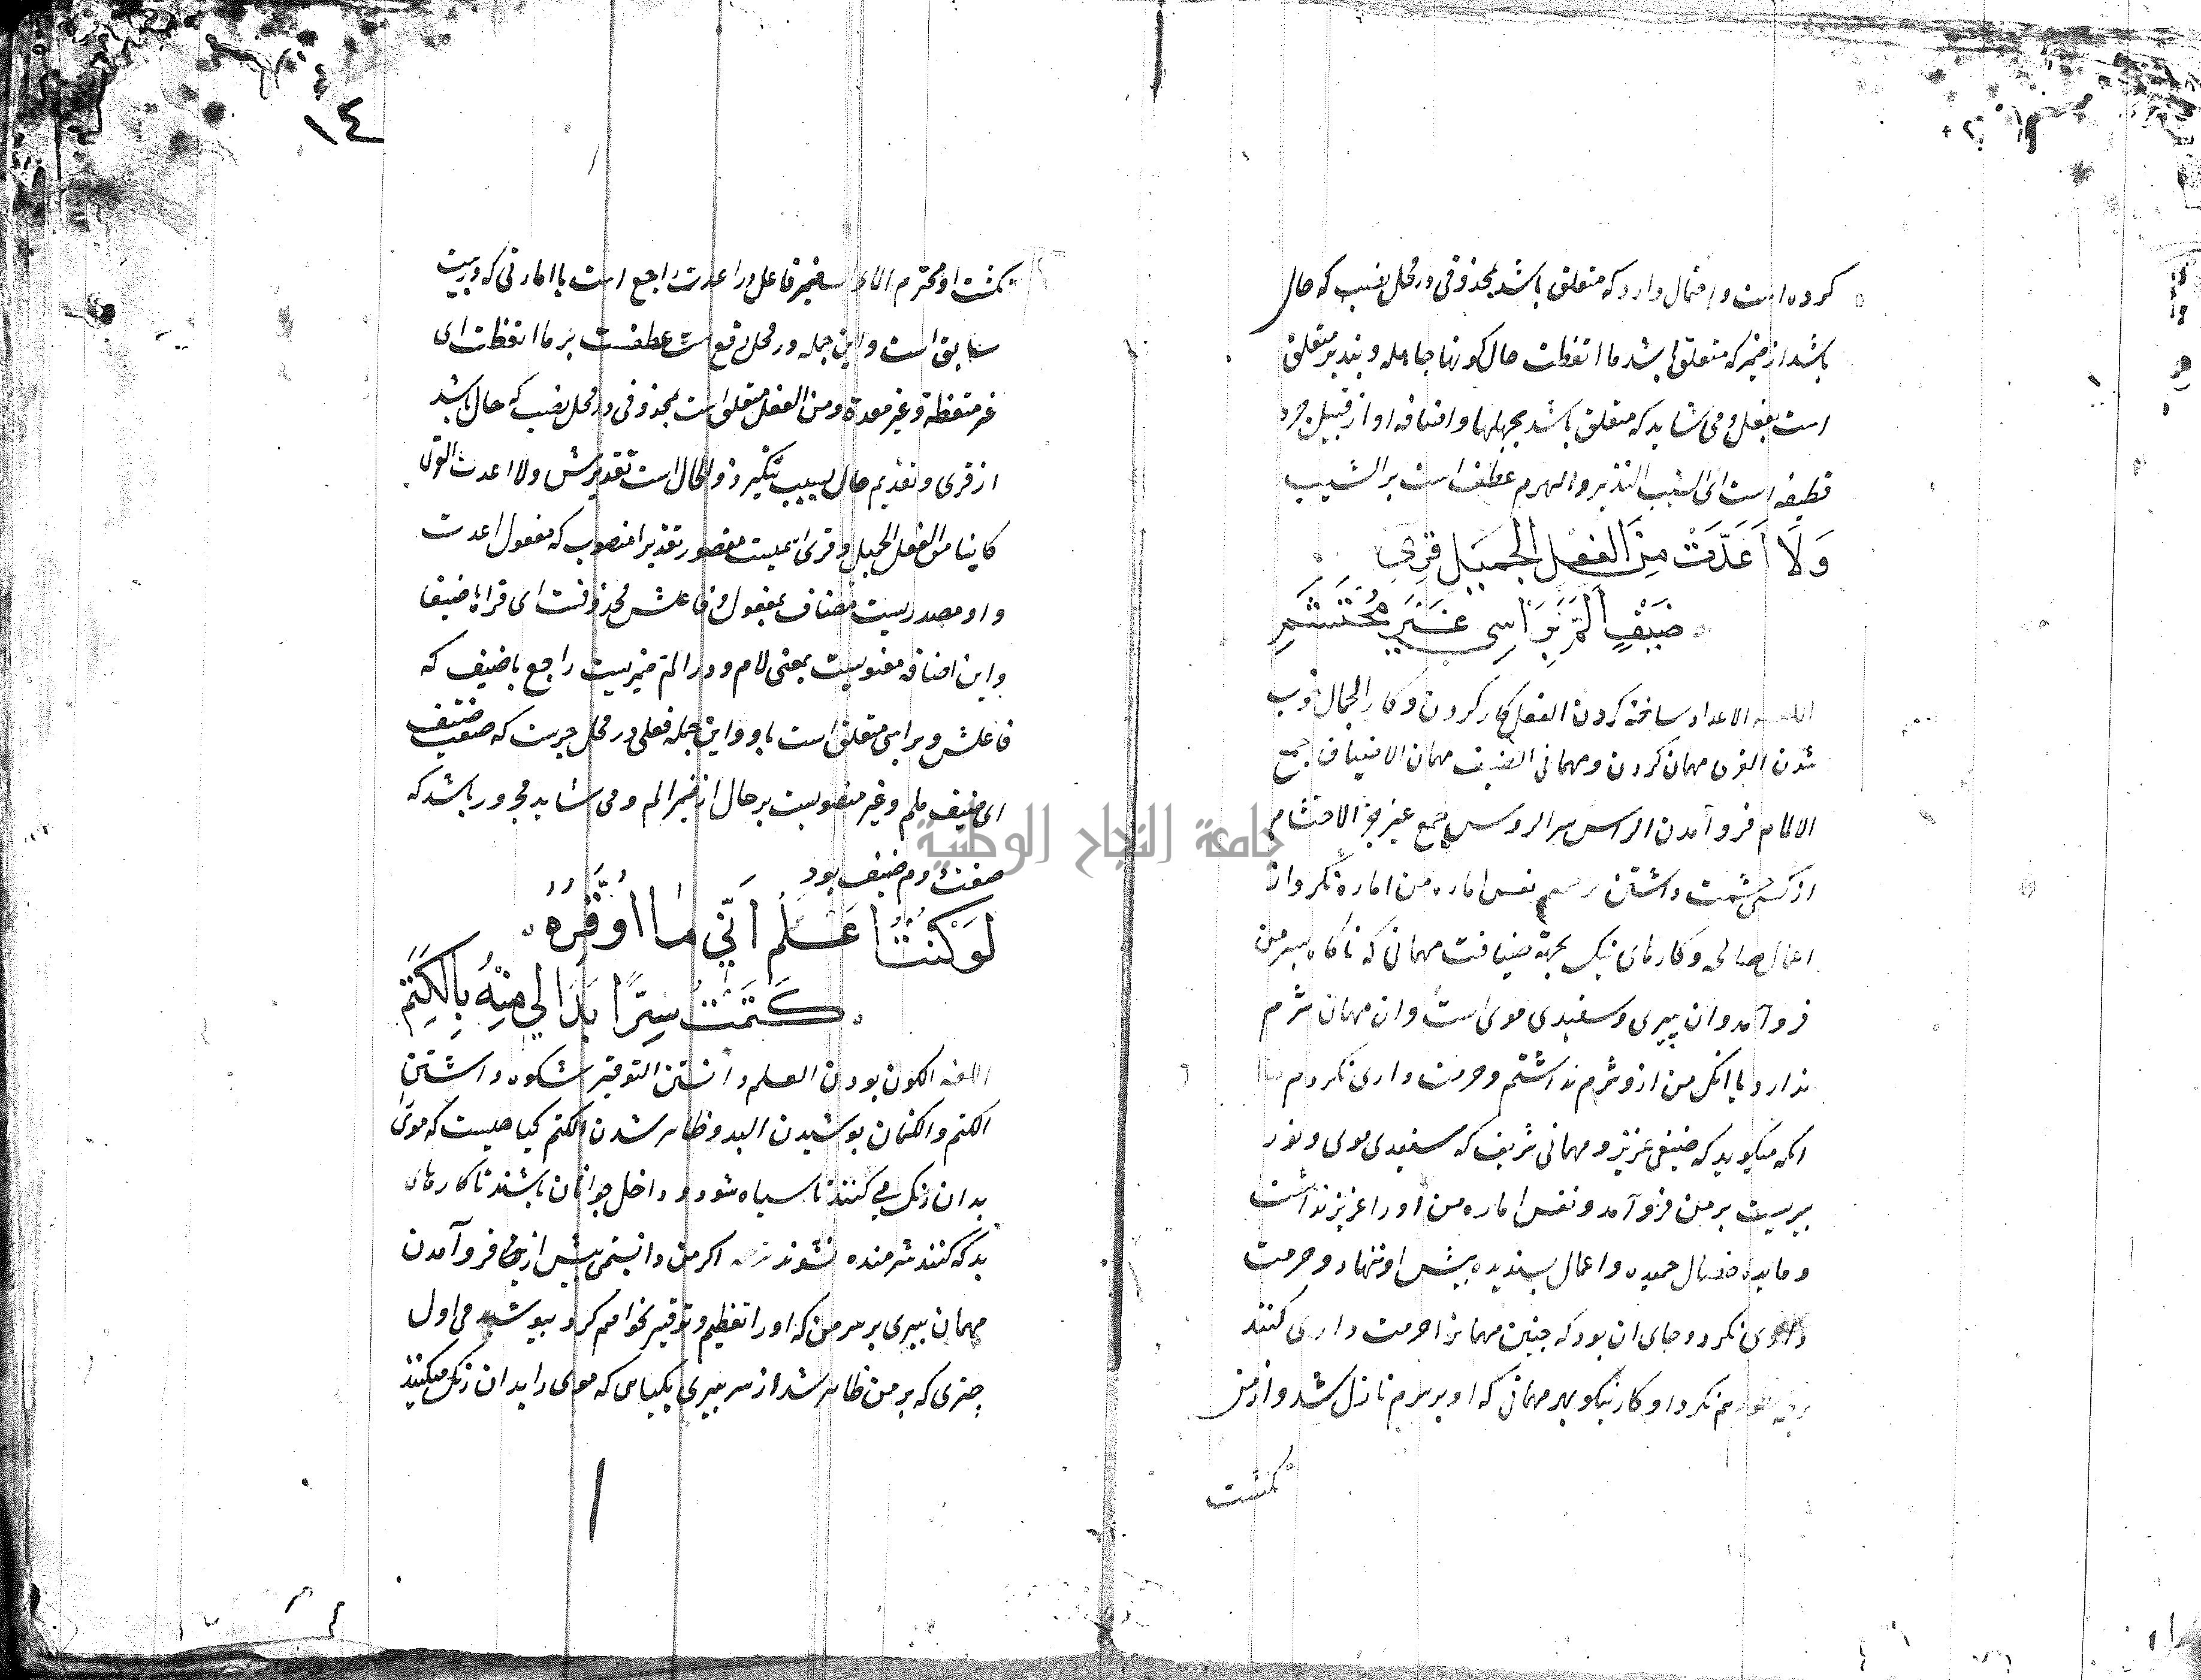 کرده است و احتمال دارد که متعلق باشد بمحذوفی در محل نصب که حال
باشد از ضمیر که متعلق باشد ما اتعظت حال کونها جاهله و بنذیر متعلق
است بفعل و می شاید که متعلق باشد بجهلها و اضافه او از قبیل جرد
قطیفه است ای الشیب النذیر و الهرم عطف است بر الشیب
وَلَا اَعَدَّتْ مِنَ الفِعْلِ الجَمِيلِ قِرٰی
ضَيْفٍ اَلَمَّ بِرَاسِي غَيْرَ مُحْتَشِمِ
الاعداد ساخته کردن الفعل کار کردن و کار الجمال خوب
شدن القری مهمان کردن و مهمانی الضیف مهمان الاضیاف جمع
الالمام فرو آمدن الراس سر الروس جمع غیر جز الاحتشام
از کسی حشمت داشتن نفس اماره من اماده نکرد از
اعمال صالحه و کارهای نیک بجهة ضیافت مهمانی که ناکاه بسر من
فرو آمد و ان پیری و سفیدی موی است و ان مهمان شرم
ندارد با انک من ازو شرم نداشتم و حرمت داری نکردم
انکه میکوید که ضیفی عزیز و مهمانی شریف که سفیدی موی و نور
پیریست بر من فرو آمد و نفس اماره من او را عزیز نداشت
و مایده خصال حمیده و اعمال پسندیده پیش او ننهاد و حرمت
داری نکرد و جای ان بود که چنین مهمانرا حرمت داری کنند
نکرد او کار نیکو بهر مهمانی که او بر سرم نازل شد و از من
نکشت
١٤
نکشت او محترم ضمیر فاعل در اعدت راجع است با امارتی که در بیت
سابق است و این جمله در محل رفع است عطفست بر ما اتعظت ای
غیر متعظة و غیر معدة و من الفعل متعلق است بمحذوفی در محل نصب که حال باشد
از قری و تقدیم حال بسبب تنکیر ذو الحال است تقدیرش ولا اعدت القری
کاینا من الفعل الجمیل و قری اسمیست مقصور تقدیرا منصوب که مفعول اعدت
و او مصدریست مضاف بمفعول و فاعلش محذوفست ای قراها ضیفا
و این اضافه معنویست بمعنی لام و در الم ضمیریست راجع با ضیف که
فاعلش و براسی متعلق است باو و این جمله فعلی در محل جریست که صفت ضیف
ای ضیف ملم و غیر منصوبست بر حال از ضمیر الم و می شاید مجرور باشد که
صفت دوم ضیف بود
لَوْ كُنْتُ اَعْلَمُ اَنّي مٰا اُوَقِّرُهُ
كَتَمْتُ سِرًّا بَدَا لِي مِنْهُ بِالكَتَمِ
اللغه الکون بودن العلم دانستن التوقیر شکوه داشتن
الکتم و الکتمان پوشیدن البدو ظاهر شدن الکتم کیاهیست که موی
بدان رنک می کنند تا سیاه شود و داخل جوانان باشند تا کارهای
بد که کنند شرمنده نشوند اکر من دانستمی پیش ازین فرو آمدن
مهمان پیری بر سر من که او را تعظیم و توقیر نخواهم کرد بپوشیدمی اول
چیزی که بر من ظاهر شد از سر پیری بکیاهی که موی را بدان رنک میکنند
جامعة النجاح الوطنية